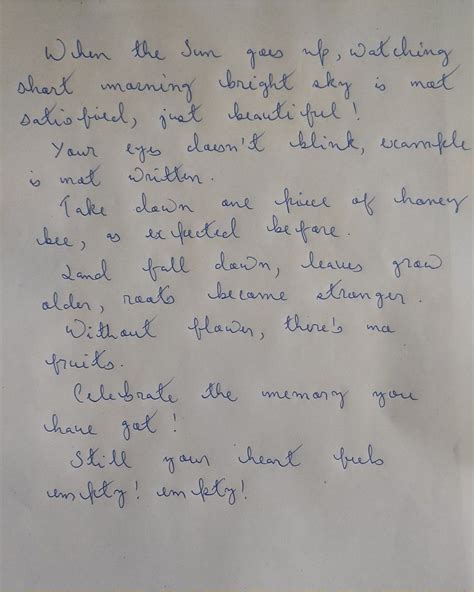 When the Sun goes up, watching
short morning bright sky is not
satisfied, just beautiful!
Your eyes doesn't blink, example
is not written.
Take down one piece of honey
bee, as expected before.
Land fall down, leaves grow
older, roots become stronger.
Without flower, there's no
fruits.
Celebrate the memory you
have got!
Still your heart feels
empty! empty!